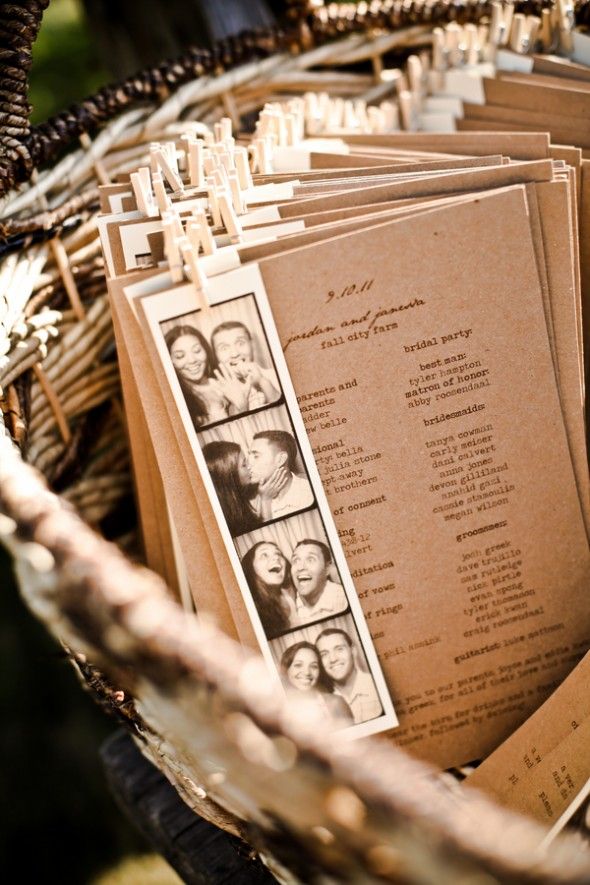 9.10.11
jordan and janessa
fall city farm
parents and
parents
adder
ew belle
sional
party: bella
julia stone
ept away
t brothers
of consent
ng
a38-12
lvert
editation
of vows
of rings
phil assink
bridal party:
best man:
tyler hampton
matron of honor:
abby roosendaal
bridesmaids:
tanya cowman
carly meiser
dani calvert
anna jones
devon gilliland
anahid gazi
cassie stamoulis
megan wilson
groomsmen:
josh greek
dave trujillo
sam rutledge
nick pirtle
evan spong
tyler thomason
erick kwan
craig roosendaal
guitarist luke mattson
you to our parents joyce and
greek for all of their love and
the barn for drinks and a
dinner followed by dancing